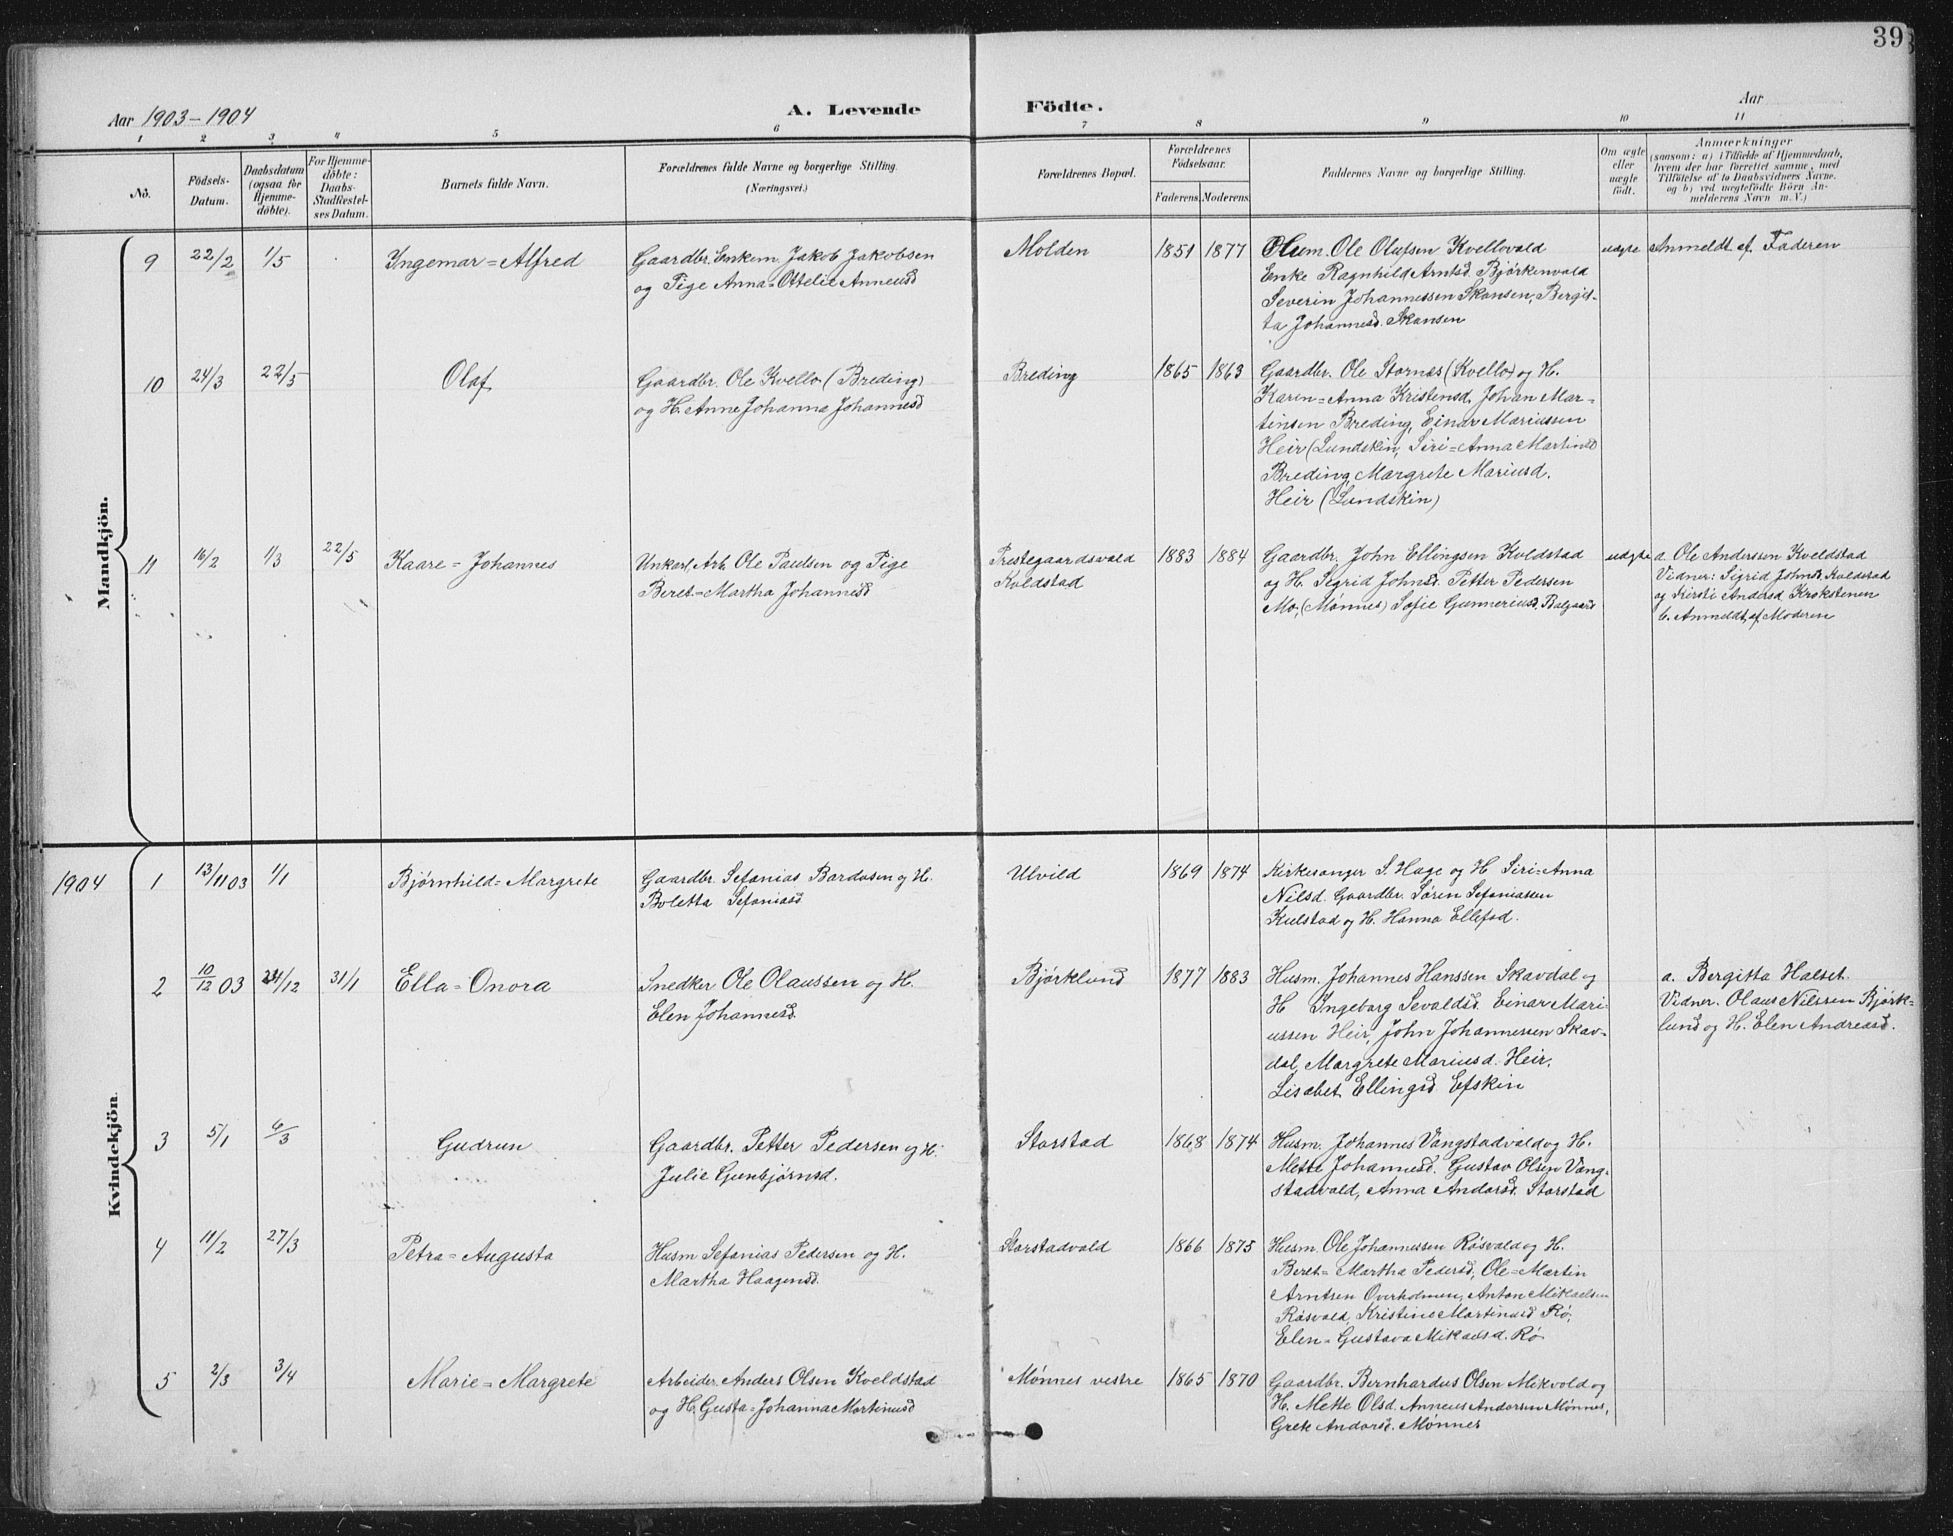 39
Aar 1903-1904
A. Levende Födte.
Aar
1 2 3 4 5 6 7 8 9 10 11
No.
Födsels-Datum.
Daabsdatum (ogsaa for Hjemme-döbte).
For Hjemme-döbte: Daabs-Stadfæstel-ses Datum.
Barnets fulde Navn.
Forældrenes fulde Navne og borgerlige Stilling.
(Næringsvei.)
Forældrenes Bopæl.
Forældrenes Födselsaar.
Faderens. Moderens.
Faddernes Navne og borgerlige Stilling.
Om ægte eller uægte födt.
Anmærkninger
(saasom: a) i Tilfælde af Hjemmedaab,
hvem der har forrettet samme, med
Tilföielse af to Daabsvidners Navne.
og b) ved uægtefödte Börn An-
melderens Navn m. V.)
Mandkjön.
9 22/2 1/5 Ingemar=Alfred
Gaardbr. Enkem. Jakob Jakobsen
og Pige Anna=Otelie Anneusd
Molden 1851 1877
Husm. Ole Olufsen Kvellovald
Enke Ragnhild Arntsd. Bjørkenvald
Severin Johannessen Skansen, Bergit-
ta Johannesd. Skansen
uægte Anmeldt af Faderen
10 24/3 22/5 Olaf
Gaardbr. Ole Kvello (Breding)
og H. Anne Johanna Johannesd
Breding 1865 1863
Gaardbr. Ole Stornæs (Kvello) og H.
Karen=Anna Kristensd, Johan Mar-
tinsen Breding, Einar Mariussen
Heir (Lundskin, Siri=Anna Martinsd
Breding, Margrete Mariusd.
Heir (Lundskin)
11 16/2 1/3 22/5 Kaare=Johannes
Unkarl, Arb. Ole Paulsen og Pige
Beret=Martha Johannesd
Prestegaardsvald
Kveldstad
1883 1884
Gaardbr. John Ellingsen Kveldstad
og H. Sigrid Johnsd. Petter Pedersen
Mo, (Mønnes) Sofie Gunneriusd. Balgaard
uægte
a. Ole Anderssen Kveldstad
Vidner: Sigrid Johnsd. Kveldstad
og Kirsti Andersd. Krokstenen
b. Anmeldt af Moderen
Kvindekjön.
1904
1 13/11 03 1/1 Bjørnhild=Margrete
Gaardbr. Sefanias Bardosen og H.
Boletta Sefaniasd
Ulvild 1869 1874
Kirkesanger S. Hage og H Siri=Anna
Nilsd. Gaardbr. Søren Sefaniassen
Kulstad og H. Hanna Ellefsd.
2 10/12 03 24/12 31/1 Ella=Onora
Snedker Ole Olaussen og H.
Elen Johannesd.
Bjørklund 1877 1883
Husm. Johannes Hanssen Skavdal og
H Ingeborg Sevaldsd. Einar Mari-
ussen Heir, John Johannessen Skav-
dal, Margrete Mariusd. Heir,
Lisabet Ellingsd Efskin
a. Bergitta Halset
Vidner. Olaus Nilssen Bjørk-
lund og H. Elen Andreasd.
3 5/1 6/3 Gudrun
Gaardbr. Petter Pedersen og H.
Julie Gunbjørnsd.
Storstad 1868 1874
Husm. Johannes Vangstadvald og H.
Mette Johannesd. Gustav Olsen Vang-
stadvald, Anna Andersd. Storstad
4 11/2 27/3 Petra=Augusta
Husm Sefanias Pedersen og H.
Martha Haagensd.
Storstadvald 1866 1875
Husm. Ole Johannessen Røsvald og H.
Beret=Martha Pedersd, Ole=Martin
Arntsen Overholmen, Anton Mikaelsen
Røsvald, Kristine Martinusd Rø,
Elen=Gustava Mikalsd. Rø
5 2/3 3/4 Marie=Margrete
Arbeider Anders Olsen Kveldstad
og H. Gusta=Johanna Martinusd
Mønnes vestre 1865 1870
Gaardbr. Bernhardus Olsen Mikvold og
H. Mette Olsd. Anneus Andersen Mønnes,
Grete Andersd. Mønnes